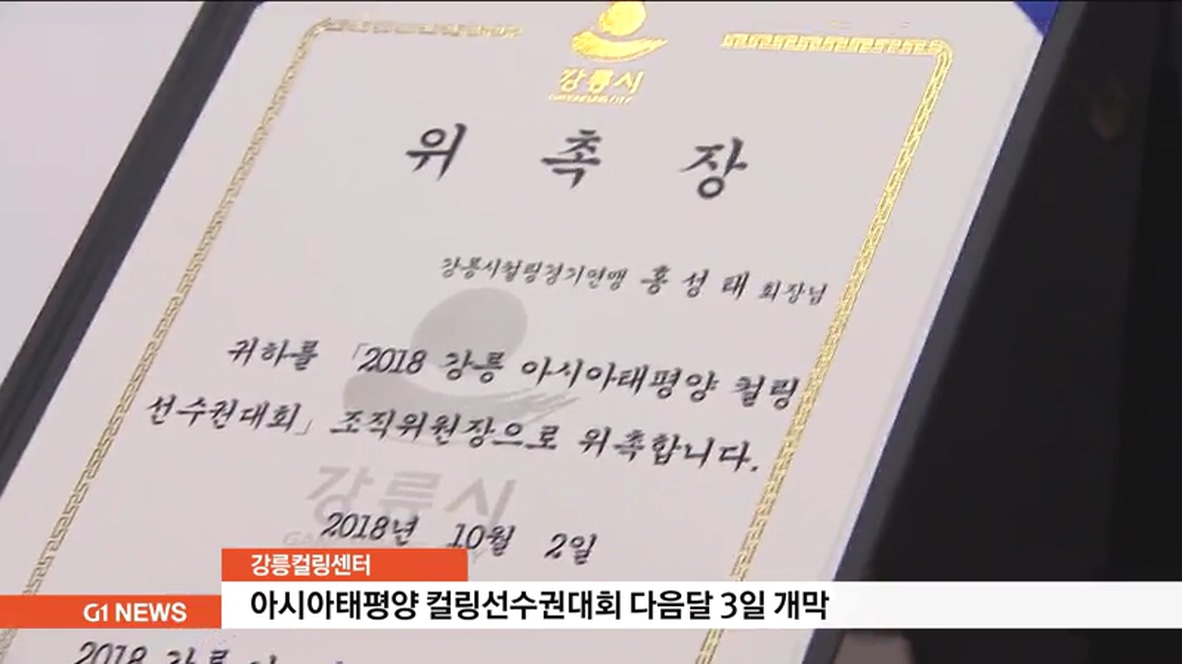 강릉시
위 촉 장
강릉시컬링경기연맹 홍 성 태 회장님
귀하를 「2018 강릉 아시아태평양 컬링
선수권대회」 조직위원장으로 위촉합니다.
강릉시
2018년 10월 2일
강릉컬링센터
G1 NEWS
아시아태평양 컬링선수권대회 다음달 3일 개막
2018 강릉